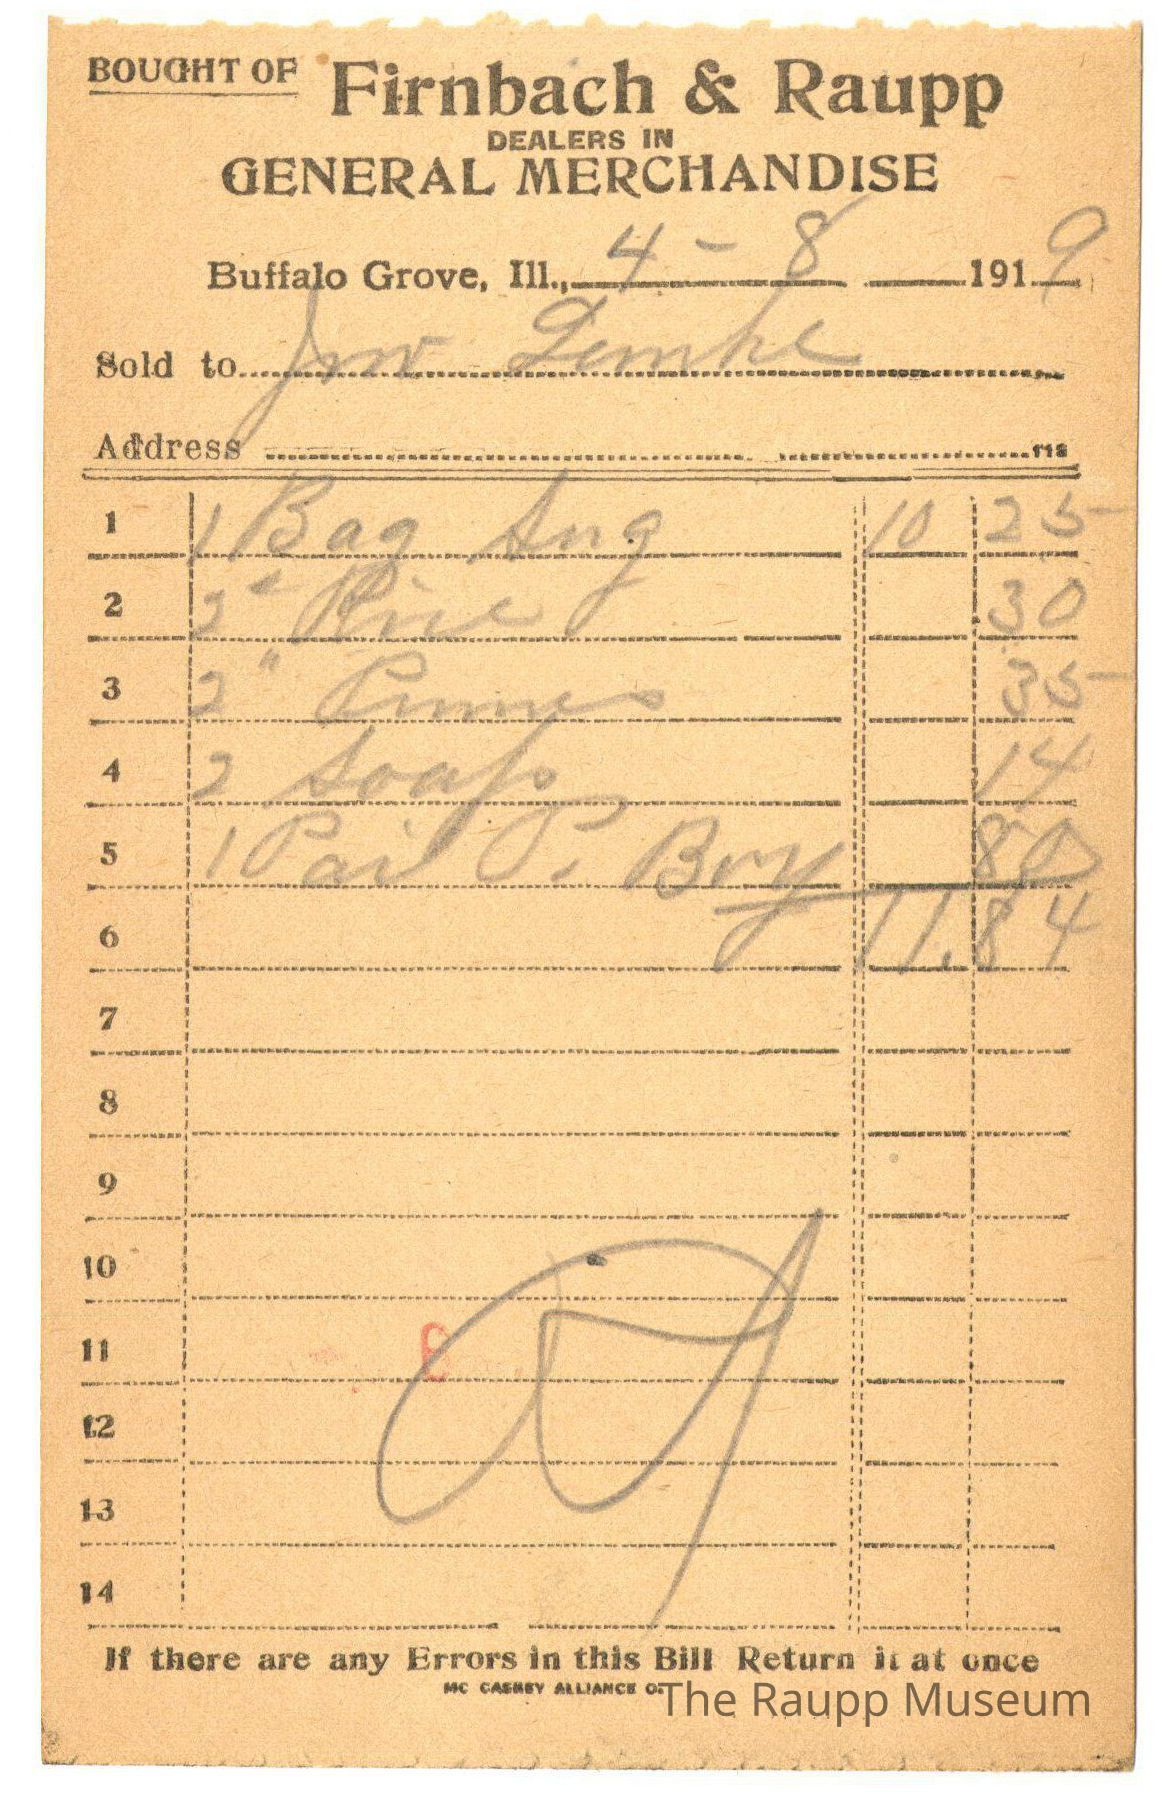 BOUGHT OF Firnbach & Raupp
DEALERS IN
GENERAL MERCHANDISE
Buffalo Grove, Ill., 4 - 8 1919
Sold to Lemke
Address
1 1 Bag Sug 10 25
2 2 " Rice 30
3 2 " Prunes 35
4 2 Soaps 14
5 1 Pail P. 80
6 11.84
7
8
9
10
11 6
12
13
14
If there are any Errors in this Bill Return it at once
MC CASKEY ALLIANCE O.
The Raupp Museum